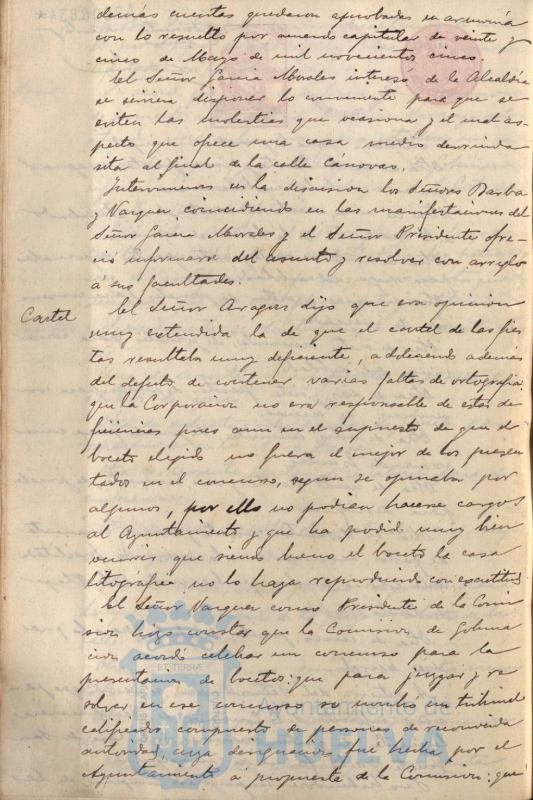 demás cuentas quedaron aprobadas en armonía
con lo resuelto por acuerdo capitular de veinte y
cinco de Mayo de mil novecientos cinco.
El Señor Garcia Morales interesó de la Alcaldía
se sirviera disponer lo conveniente para que se
eviten las molestias que ocasiona y el mal as-
pecto que ofrece una casa medio derruida
sita al final de la calle Cánovas.
Intervinieron en la discusion los Señores Barba
y Vazquez coincidiendo en las manifestaciones del
Señor Garcia Morales y el Señor Presidente ofre-
ció informarse del asunto y resolver con arreglo
á sus facultades.
Cartel
El Señor Aragon dijo que era opinion
muy extendida la de que el cartel de las fies
tas resultaba muy deficiente, adoleciendo además
del defecto de contener varias faltas de ortografia,
que la Corporacion no era responsable de estas de
ficiencias pues aun en el supuesto de que el
boceto elegido no fuera el mejor de los presen
tados en el concurso, segun se opinaba por
algunos, por ello no podian hacerse cargos
al Ayuntamiento y que ha podido muy bien
ocurrir que siendo bueno el boceto la casa
litografica no lo haya reproducido con exactitud.
El Señor Vazquez como Presidente de la Comi
sion hizo constar que la Comision de Goberna
cion acordó celebrar un concurso para la
presentacion de bocetos: que para juzgar y re
solver en ese concurso se nombró un tribunal
calificador, compuesto de personas de reconocida
autoridad, cuya designacion fué hecha por el
Ayuntamiento á propuesta de la Comision: que
Ayuntamiento de
HUELVA